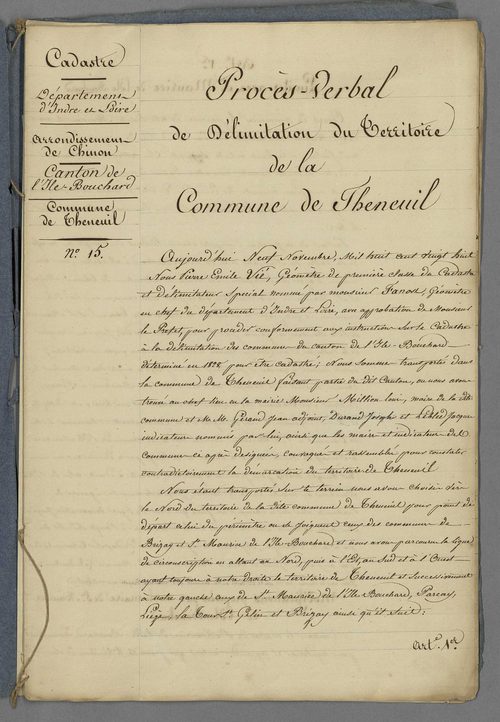 Cadastre
Département
d'Indre et Loire
Arrondissement
de Chinon
Canton de
l'Ile-Bouchard
Commune
de Theneuil
n.º 15.
Procès-Verbal
de Délimitation du Territoire
de la
Commune de Theneuil
Aujourd'hui Neuf Novembre, Mil huit cent vingt huit
Nous Emile Géomètre de première classe du Cadastre
et délimitateur Special nommé par monsieur Géomètre
en chef du département d'Indre et Loire, approbation de Monsieur
le Prefet, pour proceder conformement aux instruction Sur le Cadastre
à la délimitation des commune du canton de l'Ile-Bouchard
determiné en 1828 pour être cadastré; Nous Sommes transporté dans
la commune de Theneuil faisant partie du dit Canton, ou nous avons
trouvé au chef lieu en la mairie Monsieur Million maire de la dite
commune et M.M. Gérand Jean adjoint, Durand Joseph et Jacque
indicateur nommés par lui, ainsi que les maire et indicateur de
Commune ci après designées, convoqué et rassemblés pour constater
contradictoirement la démarcation du territoire de Theneuil
Nous étant transportés Sur le terrein nous avons choisi vers
le Nord du territoire de la dite commune de Theneuil pour point de
départ celui du périmètre ou se joignent ceux des commune de
Brizay et St. Maurice de l'Ile-Bouchard et nous avons parcouru la ligne
de circonscription en allant au Nord, puis à l'Est, au Sud et à l'Ouest
ayant toujours à notre droite le territoire de Theneuil et Successivement
à notre gauche ceux de St. Maurice de l'Ile Bouchard, Parcay,
Liège, la Tour St. Gelin et Brizay ainsi qu'il suit:
Art.e 1.er